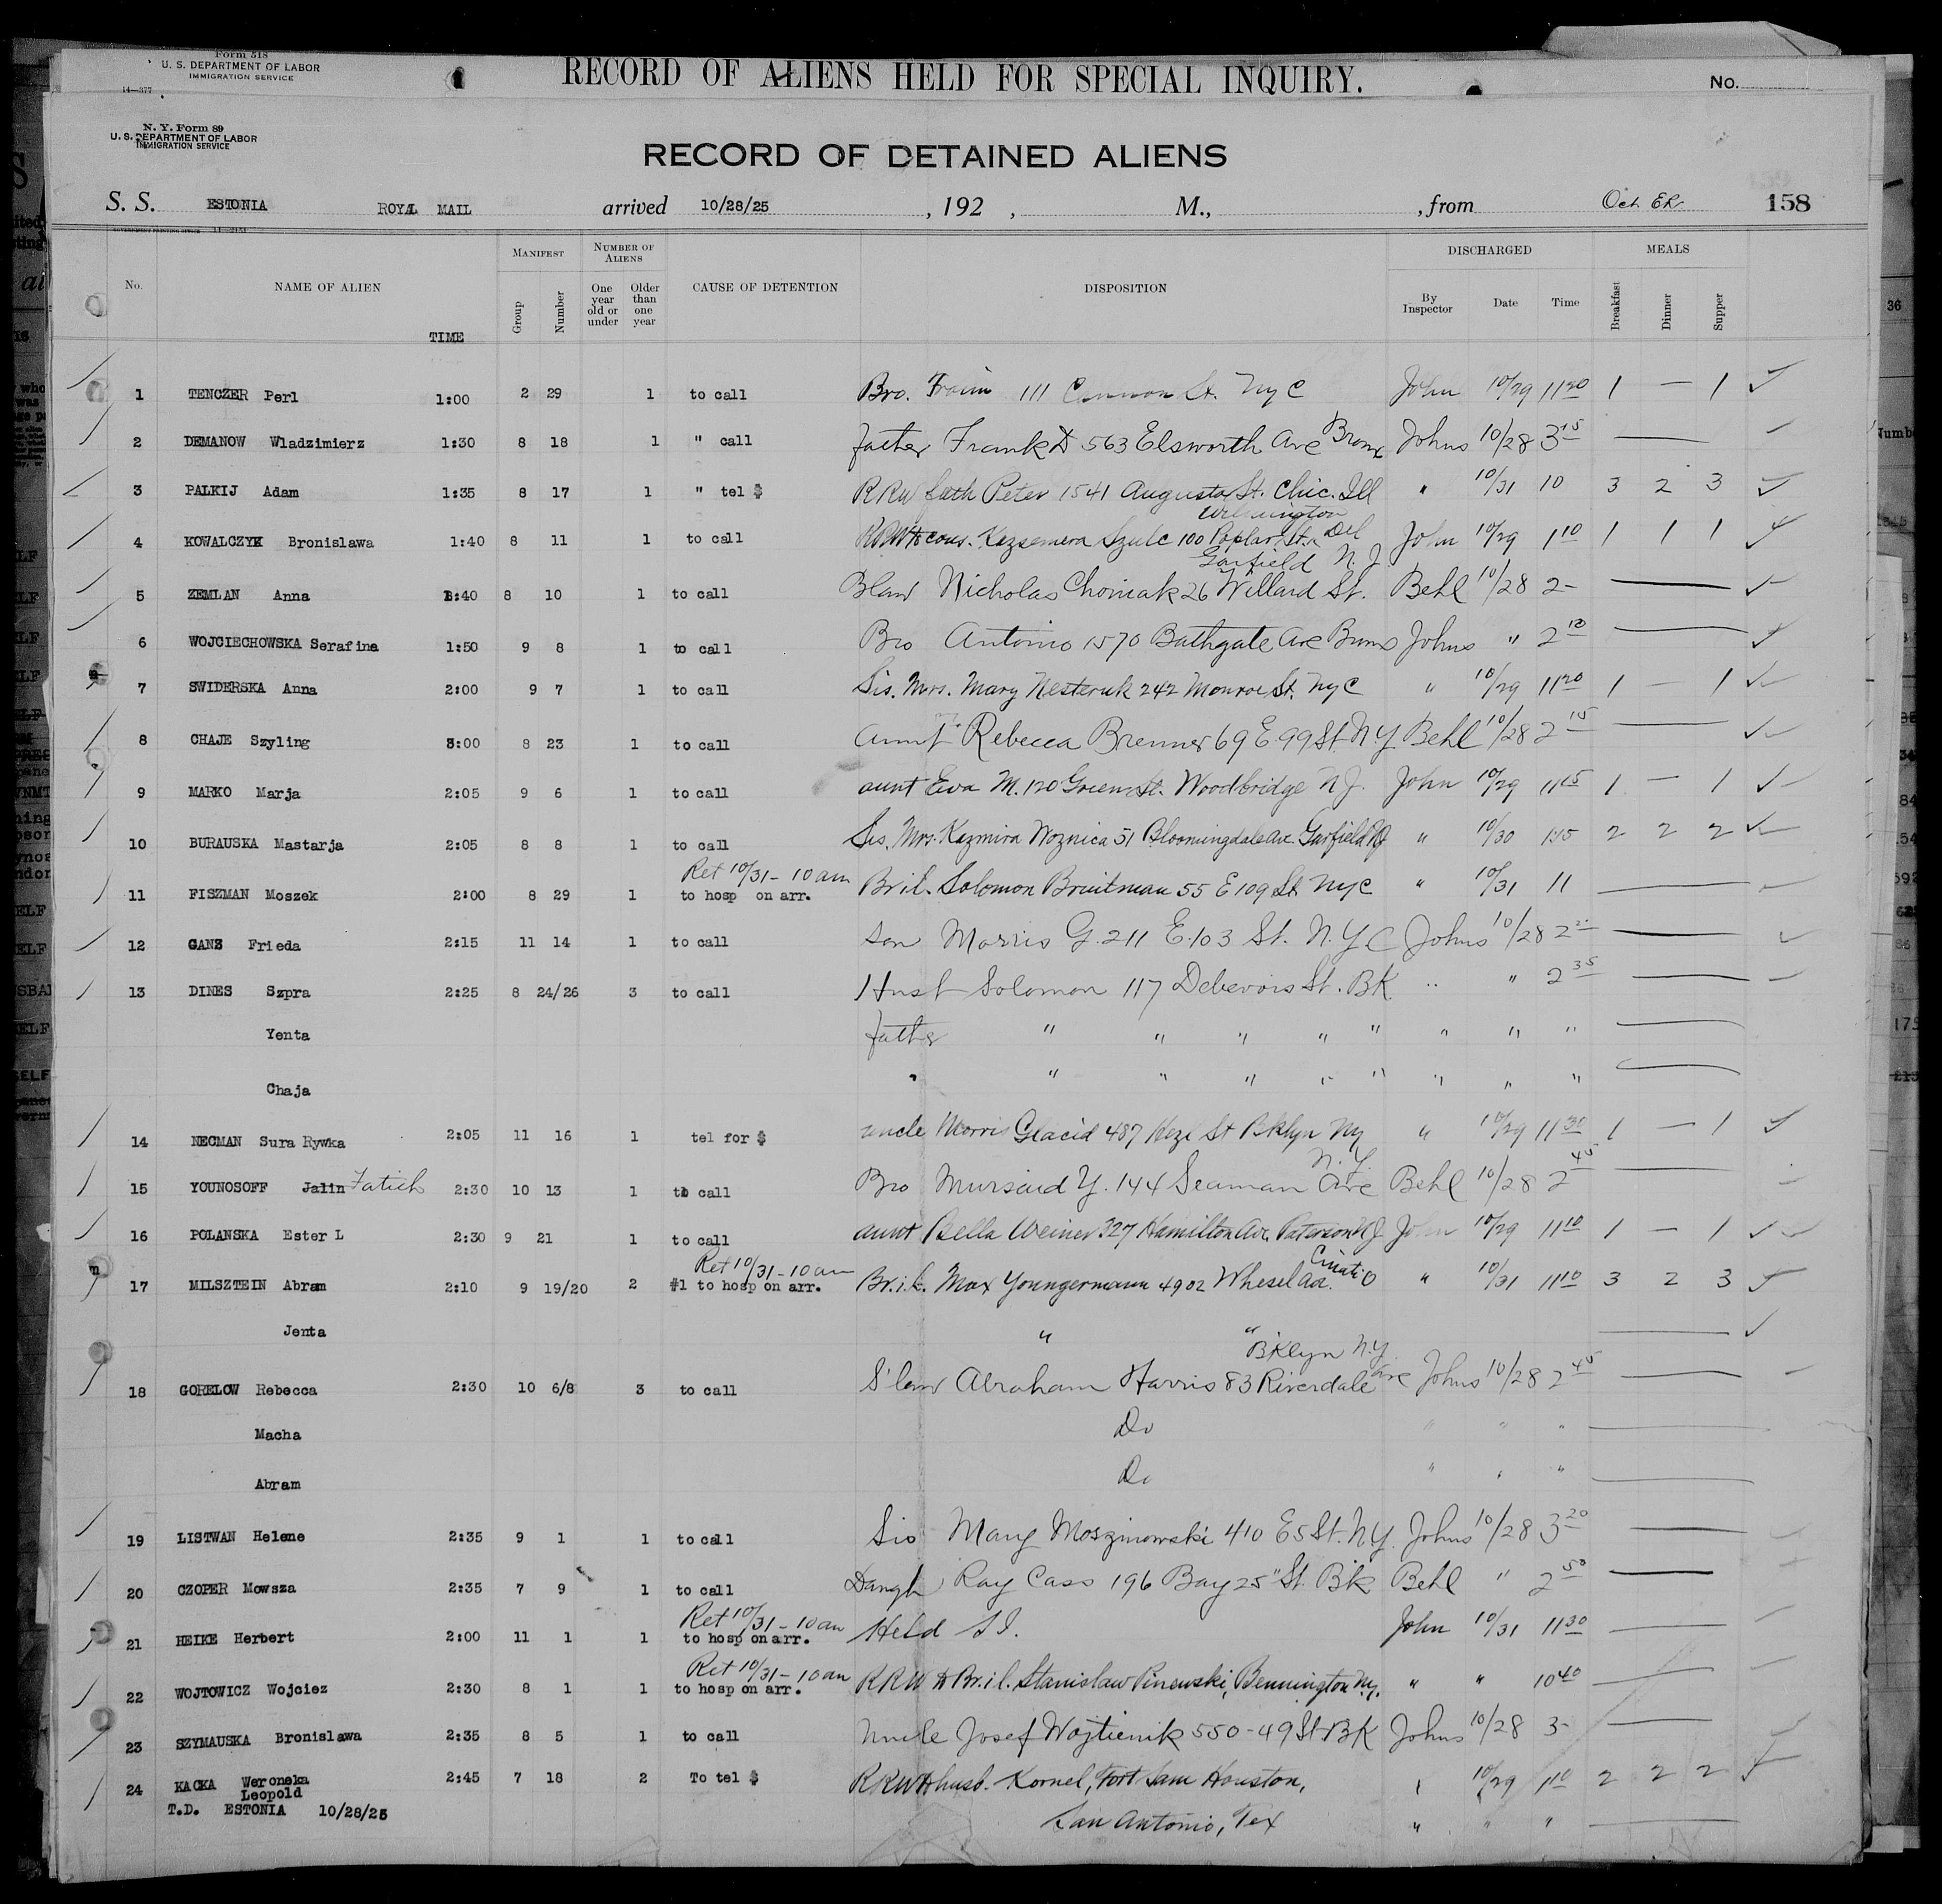 Form 518
U. S. DEPARTMENT OF LABOR
IMMIGRATION SERVICE
14—377
RECORD OF ALIENS HELD FOR SPECIAL INQUIRY.
No.
N. Y. Form 89
U. S. DEPARTMENT OF LABOR
IMMIGRATION SERVICE
RECORD OF DETAINED ALIENS
S. S. ESTONIA ROYAL MAIL arrived 10/28/25 , 192 , M., , from 158
MANIFEST NUMBER OF ALIENS DISCHARGED MEALS
No. NAME OF ALIEN TIME Group Number One year old or under Older than one year CAUSE OF DETENTION DISPOSITION By Inspector Date Time Breakfast Dinner Supper
1 TENCZER Perl 1:00 2 29 1 to call Bro. Froim 111 Cannon St. NYC John 10/29 11 20 1 — 1
2 DEMANOW Wladzimierz 1:30 8 18 1 " call father Frank D 563 Elsworth Ave Bronx Johns 10/28 3 15
3 PALKIJ Adam 1:35 8 17 1 " tel $ RRW fath Peter 1541 Augusta St. Chic. Ill " 10/31 10 3 2 3
4 KOWALCZYK Bronislawa 1:40 8 11 1 to call cous. Kazsemera Szulc 100 Poplar St. Wilmington Del John 10/29 1 10 1 1 1
5 ZEMLAN Anna 1:40 8 10 1 to call Blaw Nicholas Chomiak 26 Willard St. Garfield N. J. Behl 10/28 2-
6 WOJCIECHOWSKA Serafina 1:50 9 8 1 to call Bro Antonio 1570 Bathgate Ave Bronx Johns " 2 10
7 SWIDERSKA Anna 2:00 9 7 1 to call Sis. Mrs. Mary Nesteruk 242 Monroe St. NYC " 10/29 11 20 1 — 1
8 CHAJE Szyling 3:00 8 23 1 to call aunt Rebecca Brenner 69 E 99 St N.Y. Behl 10/28 2 15
9 MARKO Marja 2:05 9 6 1 to call aunt Eva M. 120 Green St. Woodbridge N.J. John 10/29 11 15 1 — 1
10 BURAUSKA Mastarja 2:05 8 8 1 to call Sis. Mrs. Kazmira Woznica 51 Bloomingdale Ave. Garfield NJ " 10/30 1 15 2 2 2
11 FISZMAN Moszek 2:00 8 29 1 Ret 10/31 - 10 am to hosp on arr. Br.i.l. Solomon Bruitman 55 E 109 St NYC " 10/31 11
12 GANS Frieda 2:15 11 14 1 to call son Morris G. 211 E. 103 St. N. Y. C Johns 10/28 2
13 DINES Szpra 2:25 8 24/26 3 to call Husb Solomon 117 Debevois St. BK. " " 2 35
Yenta father " " " " " " " "
Chaja " " " " " " " " "
14 NECMAN Sura Rywka 2:05 11 16 1 tel for $ uncle Morris Glacid 487 St Bklyn NY " 10/29 11 30 1 — 1
15 YOUNOSOFF Jalin Fatich 2:30 10 13 1 to call Bro Mursaid Y. 144 Seaman Ave N.Y. Behl 10/28 2 45
16 POLANSKA Ester L 2:30 9 21 1 to call aunt Bella Weiner 327 Hamilton Av. Paterson NJ John 10/29 11 10 1 — 1
17 MILSZTEIN Abram 2:10 9 19/20 2 Ret 10/31 - 10 am #1 to hosp on arr. Br.i.l. Max Youngermann 4902 Ave. O " 10/31 11 10 3 2 3
Jenta " "
18 GORELOW Rebecca 2:30 10 6/8 3 to call S'law Abraham Harris 83 Riverdale Ave Bklyn N.Y. Johns 10/28 2 45
Macha Do " " "
Abram Do " " "
19 LISTWAN Helene 2:35 9 1 1 to call Sis Mary Moszinowski 410 E 5 St. N.Y. Johns 10/28 3 20
20 CZOPER Mowsza 2:35 7 9 1 to call Daugh Ray Cass 196 Bay 25" St. Bk Behl " 2 50
21 HEIKE Herbert 2:00 11 1 1 Ret 10/31 - 10 am to hosp on arr. Held S I. John 10/31 11 30
22 WOJTOWICZ Wojciez 2:30 8 1 1 Ret 10/31 - 10 am to hosp on arr. RRW Br.i.l. Stanislaw Pinewski, Bennington N.Y. " " 10 40
23 SZYMAUSKA Bronislawa 2:35 8 5 1 to call Uncle Josef Wojtienik 550 - 49 St BK Johns 10/28 3-
24 KACKA Weroneka Leopold 2:45 7 18 2 To tel $ husb. Kornel, Fort Sam Houston, 10/29 1 10 2 2 2
T.D. ESTONIA 10/28/25 San Antonio, Tex " " "